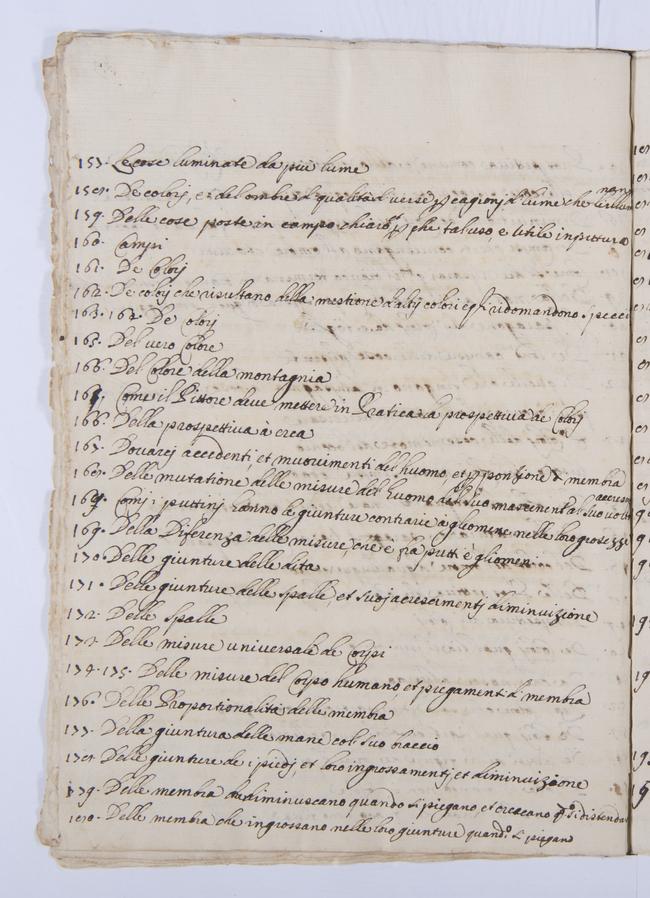 157. Le cose luminate da più lume
158. De colorj, et del ombre di qualità diverse cagionj di lume che
159. Delle cose poste in campo chiaro, e utile in pittura
160. Campi
161. De Colorj
162. De colorj che risultano della mestione d'altrj colori
163. 164. De Colorj
165. Del vero Colore
166. Del Colore della montagnia
Come il Pittore deve mettere in Pratica la prospettiva de Colorj
166. Della prospettiva à erea
167. accedenti, et muovimenti del huomo, et di membra
168. Delle mutatione delle misure del huomo
i puttinj hanno le giunture contrarie à gliomene nelle loro grosezze
169. Della Diferenza delle misure, che è fra putti è gliomeni
170. Delle giunture delle dita
171. Delle giunture delle spalle, et suoj acrescimentj diminuizione
172. Delle spalle
173. Delle misure universale de Corpi
174. 175. Delle misure del Corpo humano et piegamenti di membra
176. Delle Proportionalità delle membra
177. Della giuntura delle mane col suo braccio
178. Delle giunture de i piedj et loro ingrossamentj et diminuizione
179. Delle membra che diminuscano quando si piegano, et crescano
180. Delle membra che ingrossano nelle loro giunture quando si piegano